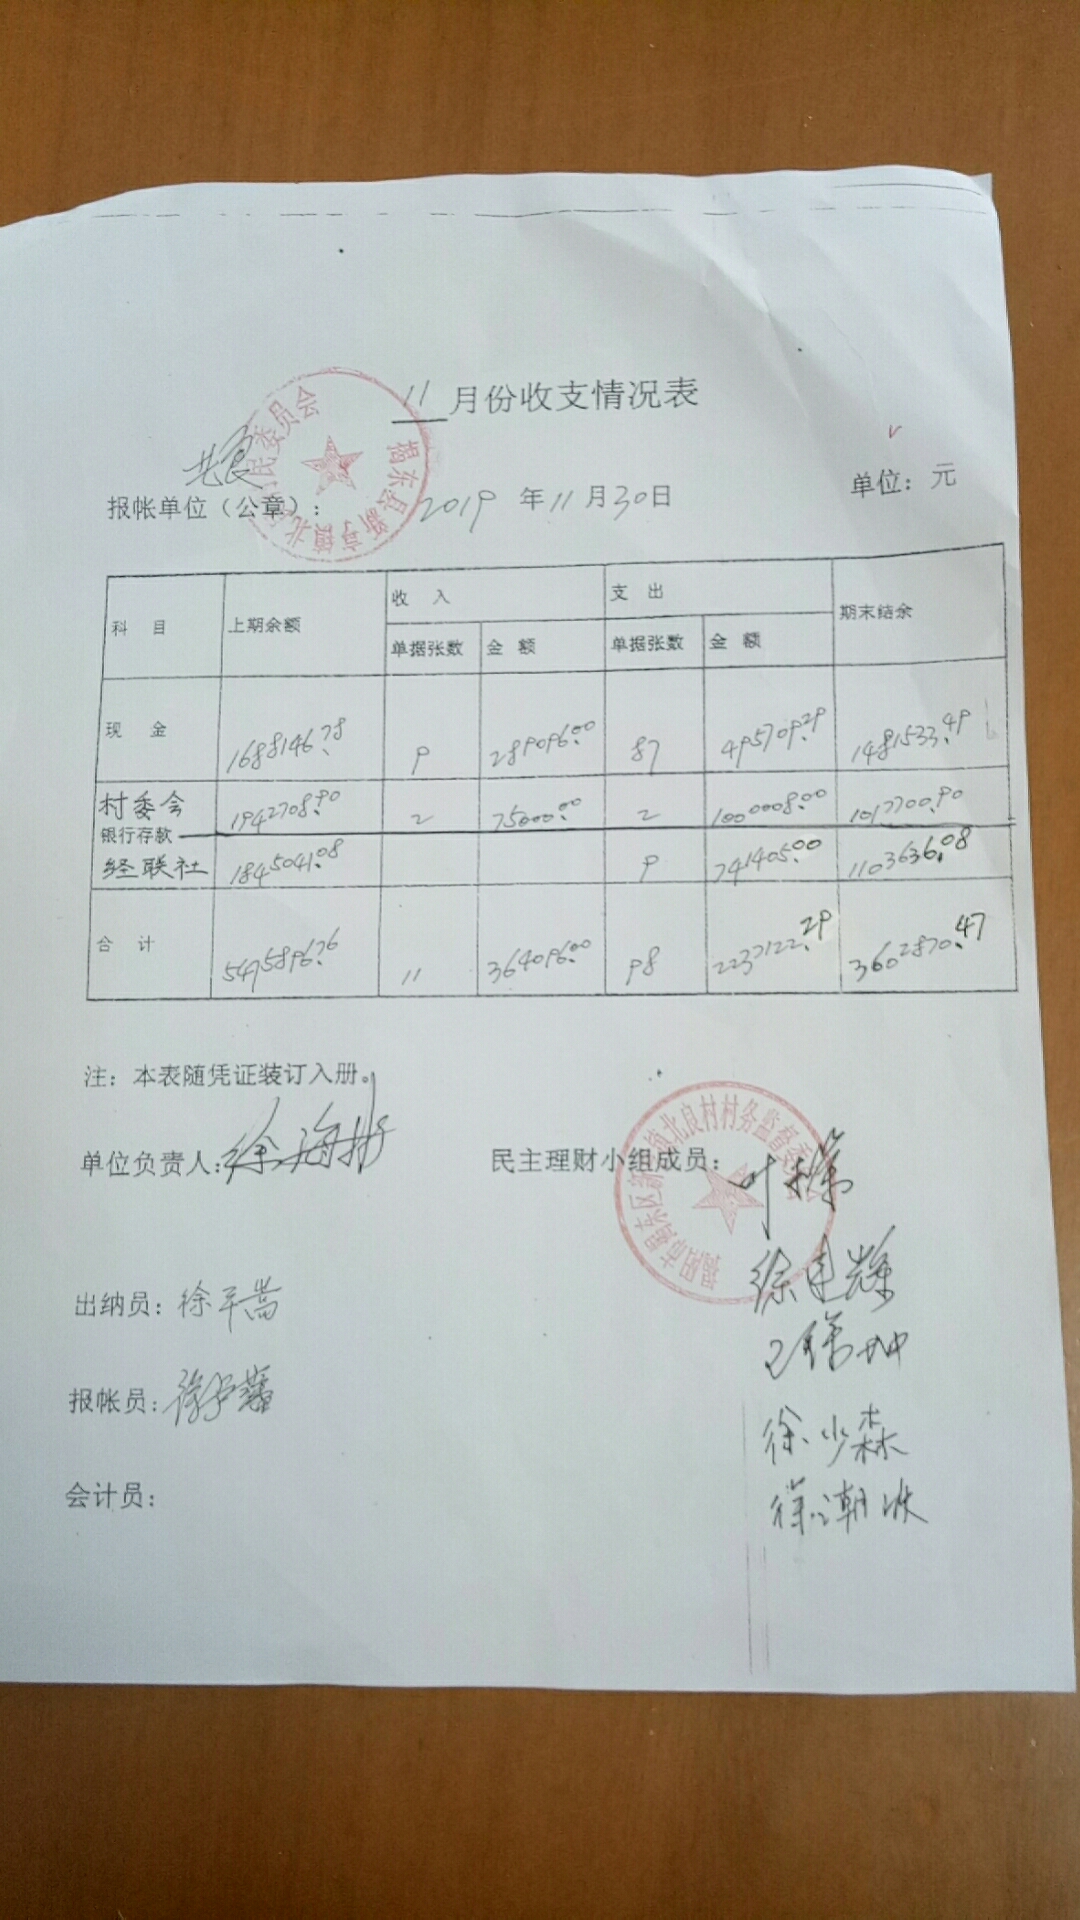 11月份收支情况表
北良
报帐单位（公章）： 2019 年 11 月 30 日 单位：元
揭东县新亨镇北良村民委员会
科 目 上期余额 收 入 支 出 期末结余
单据张数 金 额 单据张数 金 额
现 金 1688146.78 9 289096.00 87 495709.29 1481533.49
村委会 1942708.90 2 75000.00 2 1000008.00 1017700.90
银行存款
经联社 1845041.08 9 741405.00 1103636.08
合 计 5475896.76 11 364096.00 98 2237122.29 3602870.47
注：本表随凭证装订入册。
单位负责人：徐海 民主理财小组成员：叶
揭阳市揭东区新亨镇北良村村务监督委员会
徐
出纳员：徐
报帐员：
徐少森
潮
会计员：